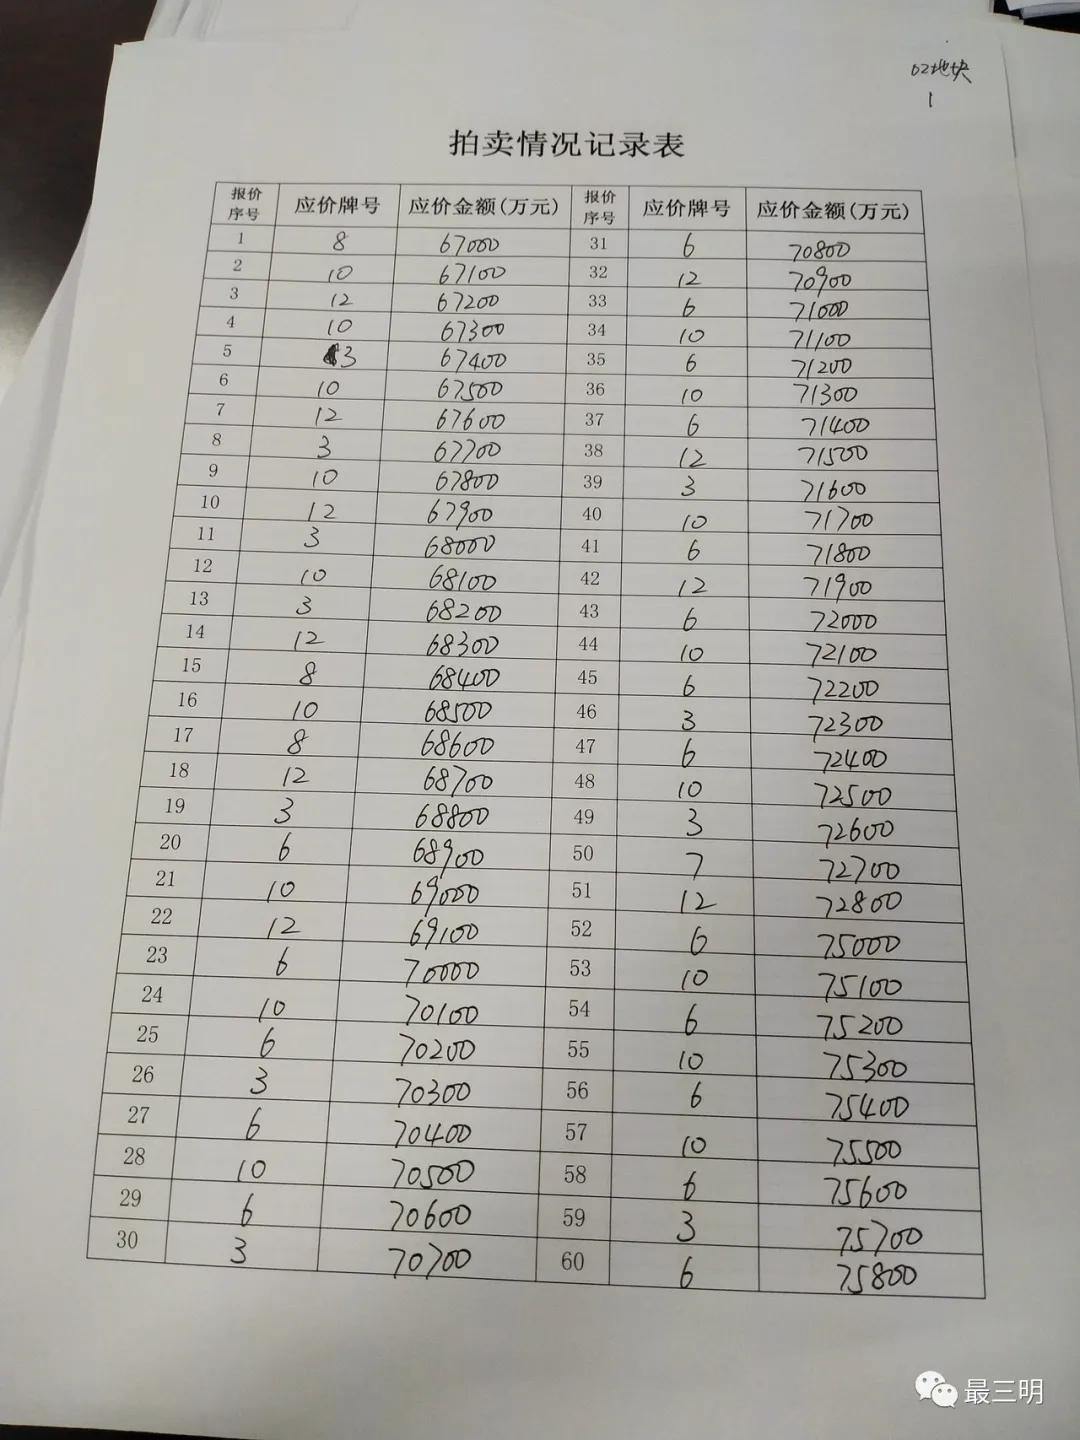 02地块
1
拍卖情况记录表
报价序号 应价牌号 应价金额(万元) 报价序号 应价牌号 应价金额(万元)
1 8 67000 31 6 70800
2 10 67100 32 12 70900
3 12 67200 33 6 71000
4 10 67300 34 10 71100
5 3 67400 35 6 71200
6 10 67500 36 10 71300
7 12 67600 37 6 71400
8 3 67700 38 12 71500
9 10 67800 39 3 71600
10 12 67900 40 10 71700
11 3 68000 41 6 71800
12 10 68100 42 12 71900
13 3 68200 43 6 72000
14 12 68300 44 10 72100
15 8 68400 45 6 72200
16 10 68500 46 3 72300
17 8 68600 47 6 72400
18 12 68700 48 10 72500
19 3 68800 49 3 72600
20 6 68900 50 7 72700
21 10 69000 51 12 72800
22 12 69100 52 6 75000
23 6 70000 53 10 75100
24 10 70100 54 6 75200
25 6 70200 55 10 75300
26 3 70300 56 6 75400
27 6 70400 57 10 75500
28 10 70500 58 6 75600
29 6 70600 59 3 75700
30 3 70700 60 6 75800
最三明